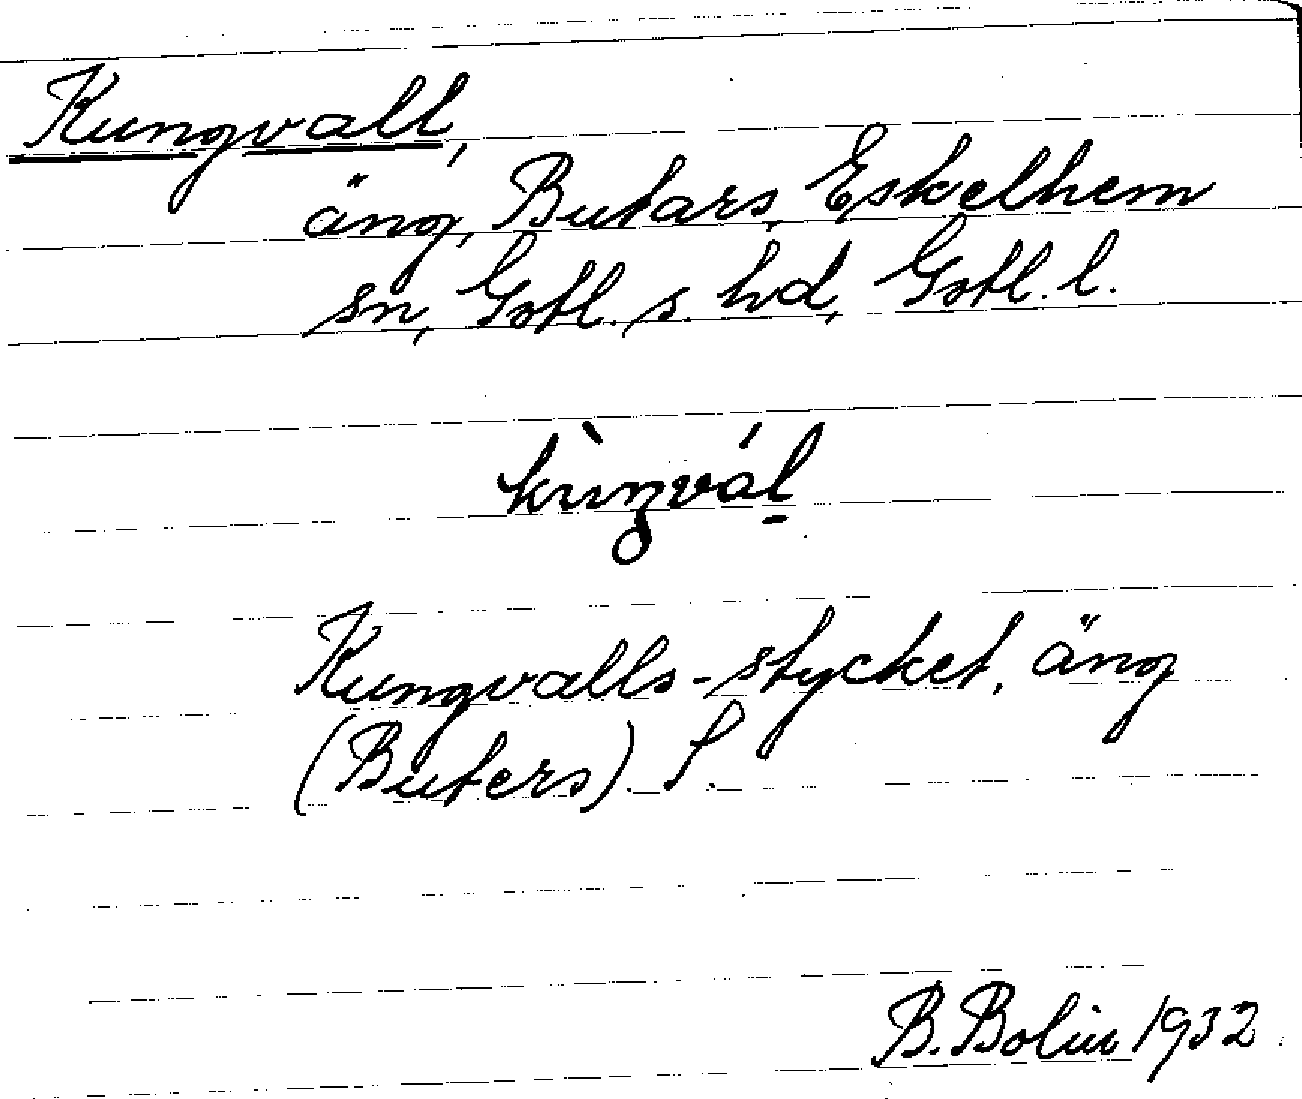 Kungvall,
äng, Butars, Eskelhem
sn, Gotl. s. hd, Gotl. l.
kùŋvál̠
Kungvalls-stycket, äng
(Buters). S.
B. Bolin 1932.